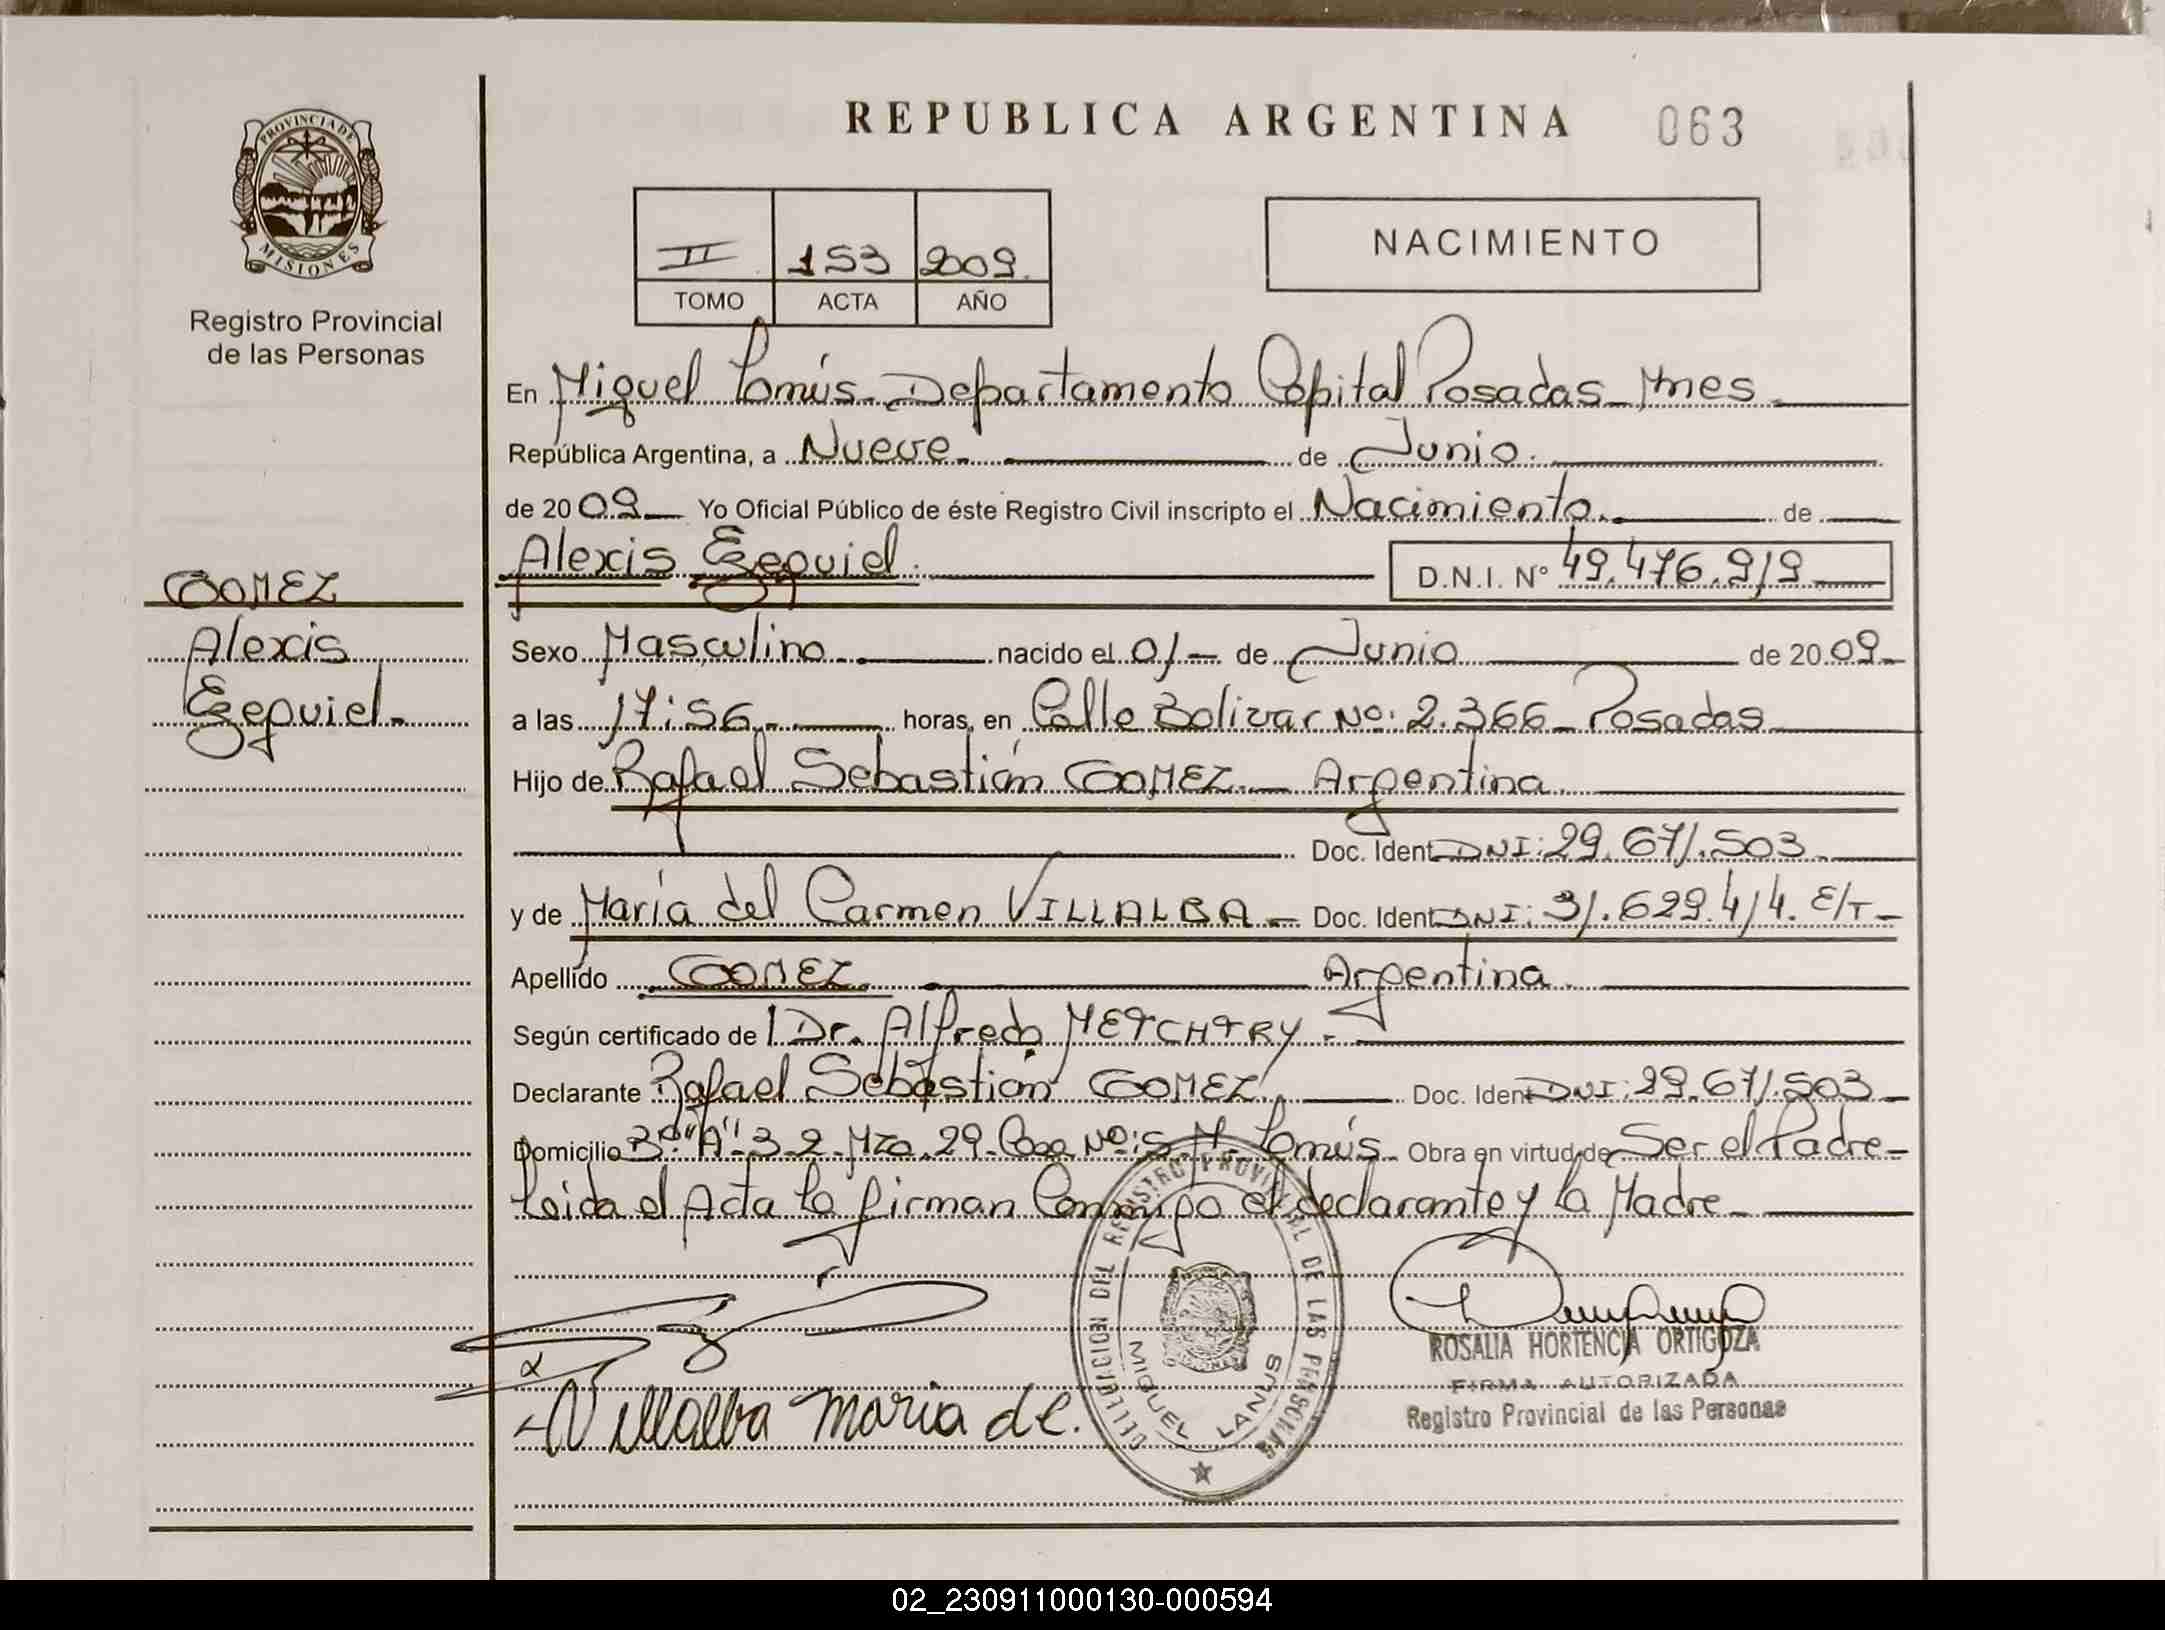 REPUBLICA ARGENTINA 063
PROVINCIA DE
MISIONES
Registro Provincial
de las Personas
II 153 2009.
TOMO ACTA AÑO
NACIMIENTO
En Miguel Lanús - Departamento Capital Posadas - Mnes -
República Argentina, a Nueve - de Junio.
de 20 09 - Yo Oficial Público de éste Registro Civil inscripto el Nacimiento - de
Alexis Ezequiel. D.N.I. N° 49.476.919
GOMEZ
Alexis
Ezequiel -
Sexo Masculino - nacido el 01 - de Junio de 20 09 -
a las 17:56 - horas, en Calle Bolivar No: 2.366 - Posadas
Hijo de Rafael Sebastián GOMEZ - Argentina.
Doc. Ident DNI: 29.671.503 -
y de María del Carmen VILLALBA - Doc. Ident DNI: 31.629.414. E/T -
Apellido GOMEZ. Argentina.
Según certificado de Dr. Alfredo
Declarante Rafael Sebastián GOMEZ, Doc. Ident DNI: 29.671.503 -
Domicilio B° "A" 3-2 - Mza. 29 - Casa No: 5 M. Lanús - Obra en virtud de Ser el Padre -
Leida el Acta la firman Conmigo el declarante y la Madre -
DELEGACION DEL REGISTRO PROVINCIAL DE LAS PERSONAS
MIGUEL LANUS
ROSALIA HORTENCIA ORTIGOZA
FIRMA AUTORIZADA
Registro Provincial de las Personas
Villalba maria del.
02_230911000130-000594